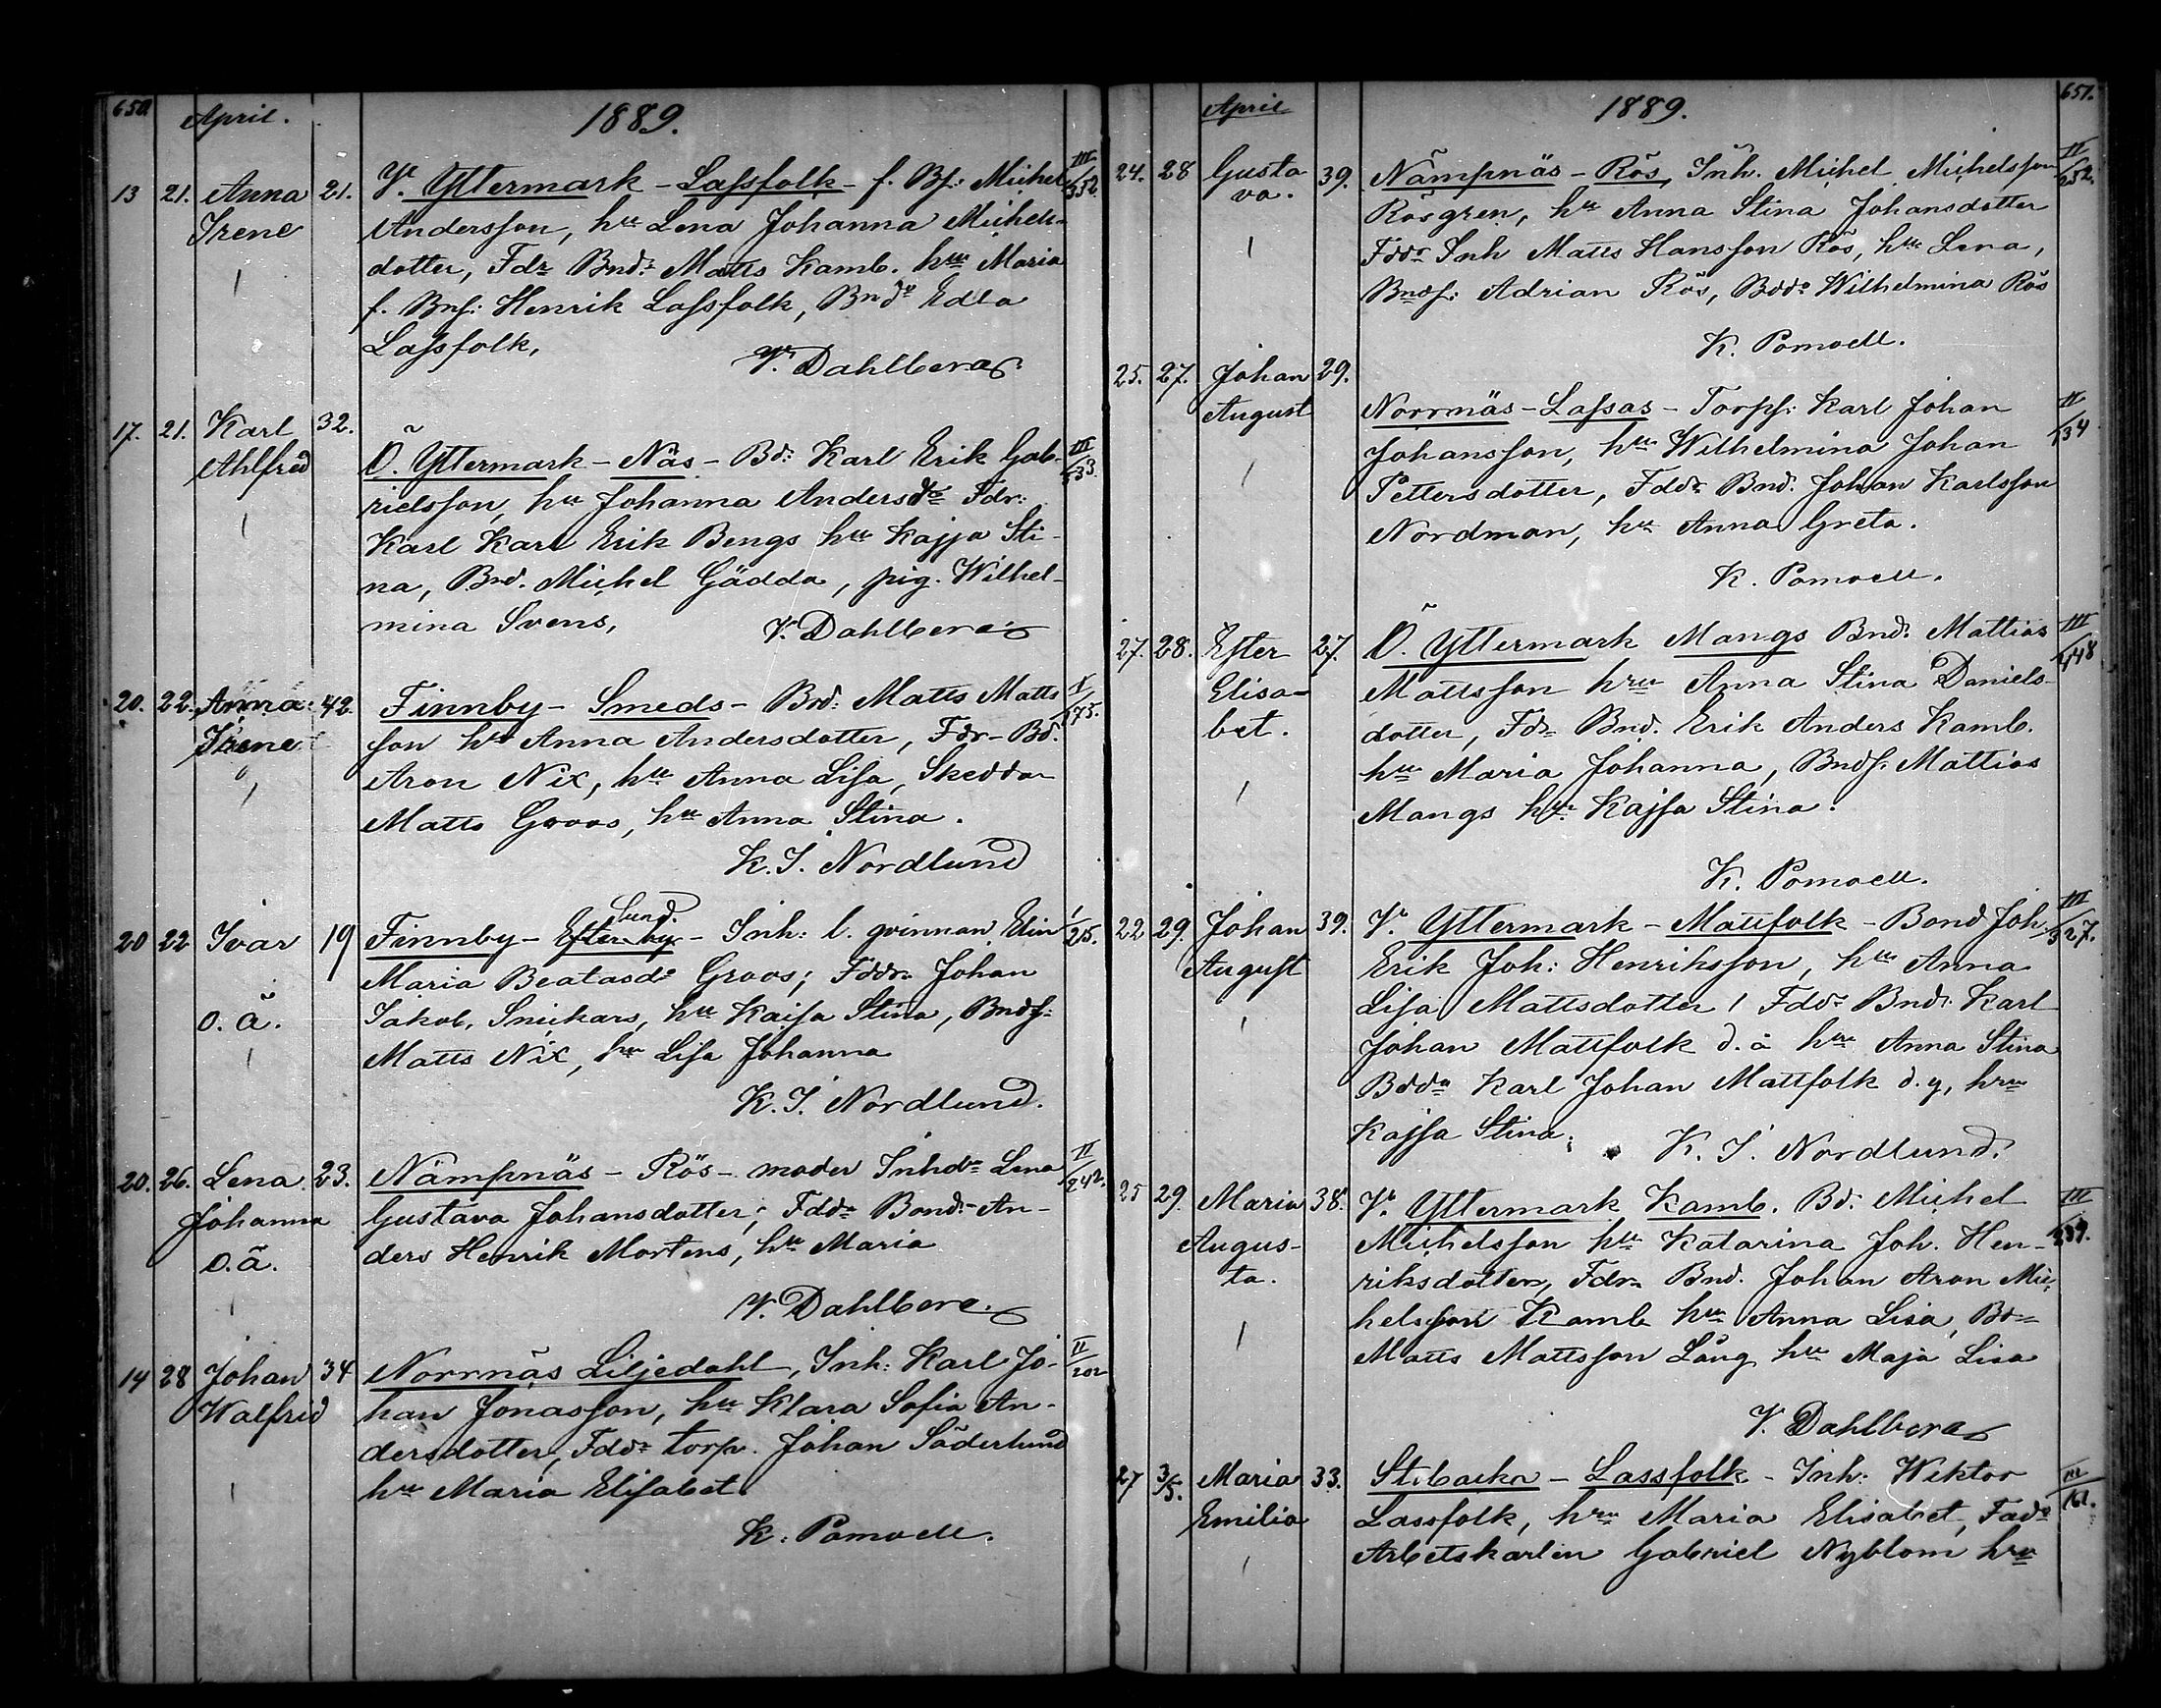 650.
April.
1889.
13 21. Anna 21. Yr. Yttermark - Lassfolk - f. Bf: Michel III/532
Irene Andersson, hu Lena Johanna Michels-
dotter, Fdr Bnd: Matts Kamb. hru Maria
f. Bnf: Henrik Lassfolk, Bndr Edla
Lassfolk,
V. Dahlberg
17. 21. Karl 32.
Ahlfred Ö. Yttermark - Näs - Bd: Karl Erik Gab- III/533.
rielsson, hu Johanna Andersdr Fdr:
Karl Karl Erik Bengs hu Kajsa Sti-
na, Bnd. Michel Gädda, pig. Wilhel-
mina Svens,
V. Dahlberg
20. 22. Anna 42. Finnby - Smeds - Bnd: Matts Matts I/175.
Irene son hu Anna Andersdotter, Fdr - Bd.
Aron Nix, hu Anna Lisa, Skeddar
Matts Groos, hu Anna Stina.
K. I. Nordlund
Lund.
20 22 Ivar 19 Finnby - Efterby - Inh: l. qvinnan Elin I/215.
Maria Beatasdr Groos; Fddr Johan
o.ä. Jakob, Snickars, hu Kaisa Stina, Bndf:
Matts Nix, hu Lisa Johanna
K. I. Nordlund.
20. 26. Lena 23. Nämpnäs - Rös - moder Inhdr Lena II/242.
Johanna Gustava Johansdotter; Fddr Bond - An-
o.ä. ders Henrik Mortens, hu Maria
V. Dahlberg
14 28 Johan 34 Norrnäs Liljedahl, Inh: Karl Jo- II/202
Walfrid han Jonasson, hu Klara Sofia An-
dersdotter, Fddr torp. Johan Söderlund
hu Maria Elisabet
K. Pomoell.
651.
April
1889.
24. 28 Gusta 39. Nämpnäs - Rös, Inh. Michel Michelsson II/252.
va. Rösgren, hu Anna Stina Johansdotter
Fddr Inh Matts Hansson Rös, hu Lena,
Bndf: Adrian Rös, Bddr Wilhelmina Rös
K. Pomoell.
25. 27. Johan 29.
August Norrnäs - Lassas - Torpf: Karl Johan II/134
Johansson, hu Wilhelmina Johan
Pettersdotter, Fddr Bnd. Johan Karlsson
Nordman, hu Anna Greta.
K. Pomoell.
27. 28. Ester 27. Ö. Yttermark Mangs Bnd. Mattias III/448
Elisa- Mattsson hru Anna Stina Daniels-
bet. dotter, Fdr Bnd. Erik Anders Kamb.
hu Maria Johanna, Bndf: Mattias
Mangs hu Kajsa Stina.
K. Pomoell.
22 29. Johan 39. Yr. Yttermark - Mattfolk - Bond Joh. III/327.
August Erik Joh: Henriksson, hu Anna
Lisa Mattsdotter / Fddr Bnd: Karl
Johan Mattfolk d. ä hru Anna Stina
Bddr Karl Johan Mattfolk d. y, hru
Kajsa Stina.
K. I. Nordlund.
25 29. Maria 38. Yr. Yttermark Kamb. Bd: Michel III
Augus- Michelsson hu Katarina Joh. Hen-
ta. riksdotter, Fdr Bnd. Johan Aron Mic-
helsson Kamb hu Anna Lisa, Bd
Matts Mattsson Lång hu Maja Lisa
V. Dahlberg
27 3/5. Maria 33. Stobacka - Lassfolk - Inh: Wiktor III/161.
Emilia Lassfolk, hru Maria Elisabet, Fadr
Arbetskarlen Gabriel Nyblom hru